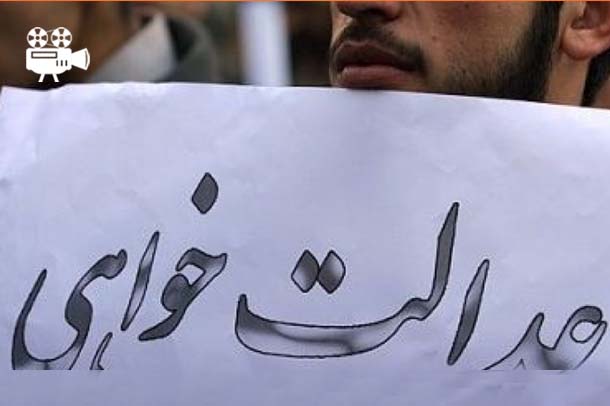 عدالت خواهی